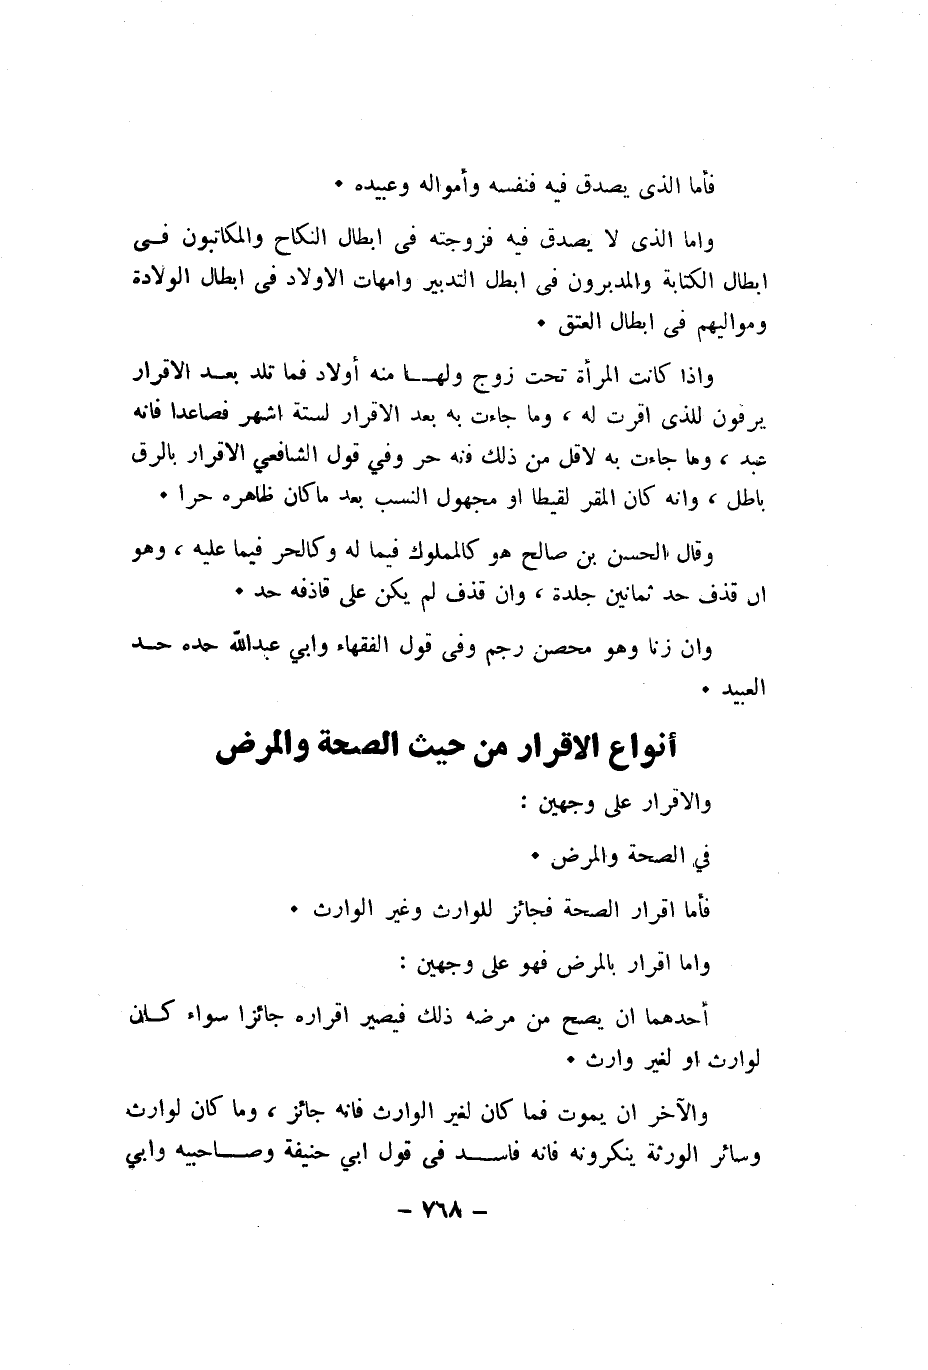 فأما الذى يصدق فيه فنفسه وأمواله وعبيده •
واما الذى لا يصدق فيه فزوجته فى ابطال النكاح والمكاتبون فـى
ابطال الكتابة والمدبرون فى ابطل التدبير وامهات الاولاد فى ابطال الولادة
ومواليهم فى ابطال العتق •
واذا كانت المرأة تحت زوج ولهـا منه أولاد فما تلد بعـد الاقرار
يرقون للذى اقرت له ، وما جاءت به بعد الاقرار لستة اشهر فصاعدا فانه
عبد ، وما جاءت به لاقل من ذلك فنه حر وفي قول الشافعي الاقرار بالرق
باطل ، وانه كان المقر لقيطا او مجهول النسب بعد ماكان ظاهره حرا •
وقال الحسن بن صالح هو كالمملوك فيما له وكالحر فيما عليه ، وهو
ان قذف حد ثمانين جلدة ، وان قذف لم يكن على قاذفه حد •
وان زنا وهو محصن رجم وفى قول الفقهاء وابي عبدالله حده حـد
العبيد •
أنواع الاقرار من حيث الصحة والمرض
والاقرار على وجهين :
في الصحة والمرض •
فأما اقرار الصحة فجائز للوارث وغير الوارث •
واما اقرار بالمرض فهو على وجهين :
أحدهما ان يصح من مرضه ذلك فيصير اقراره جائزا سواء كـان
لوارث او لغير وارث •
والآخر ان يموت فما كان لغير الوارث فانه جائز ، وما كان لوارث
وسائر الورثة ينكرونه فانه فاسـد فى قول ابي حنيفة وصـاحبيه وابي
– ٧٦٨ –